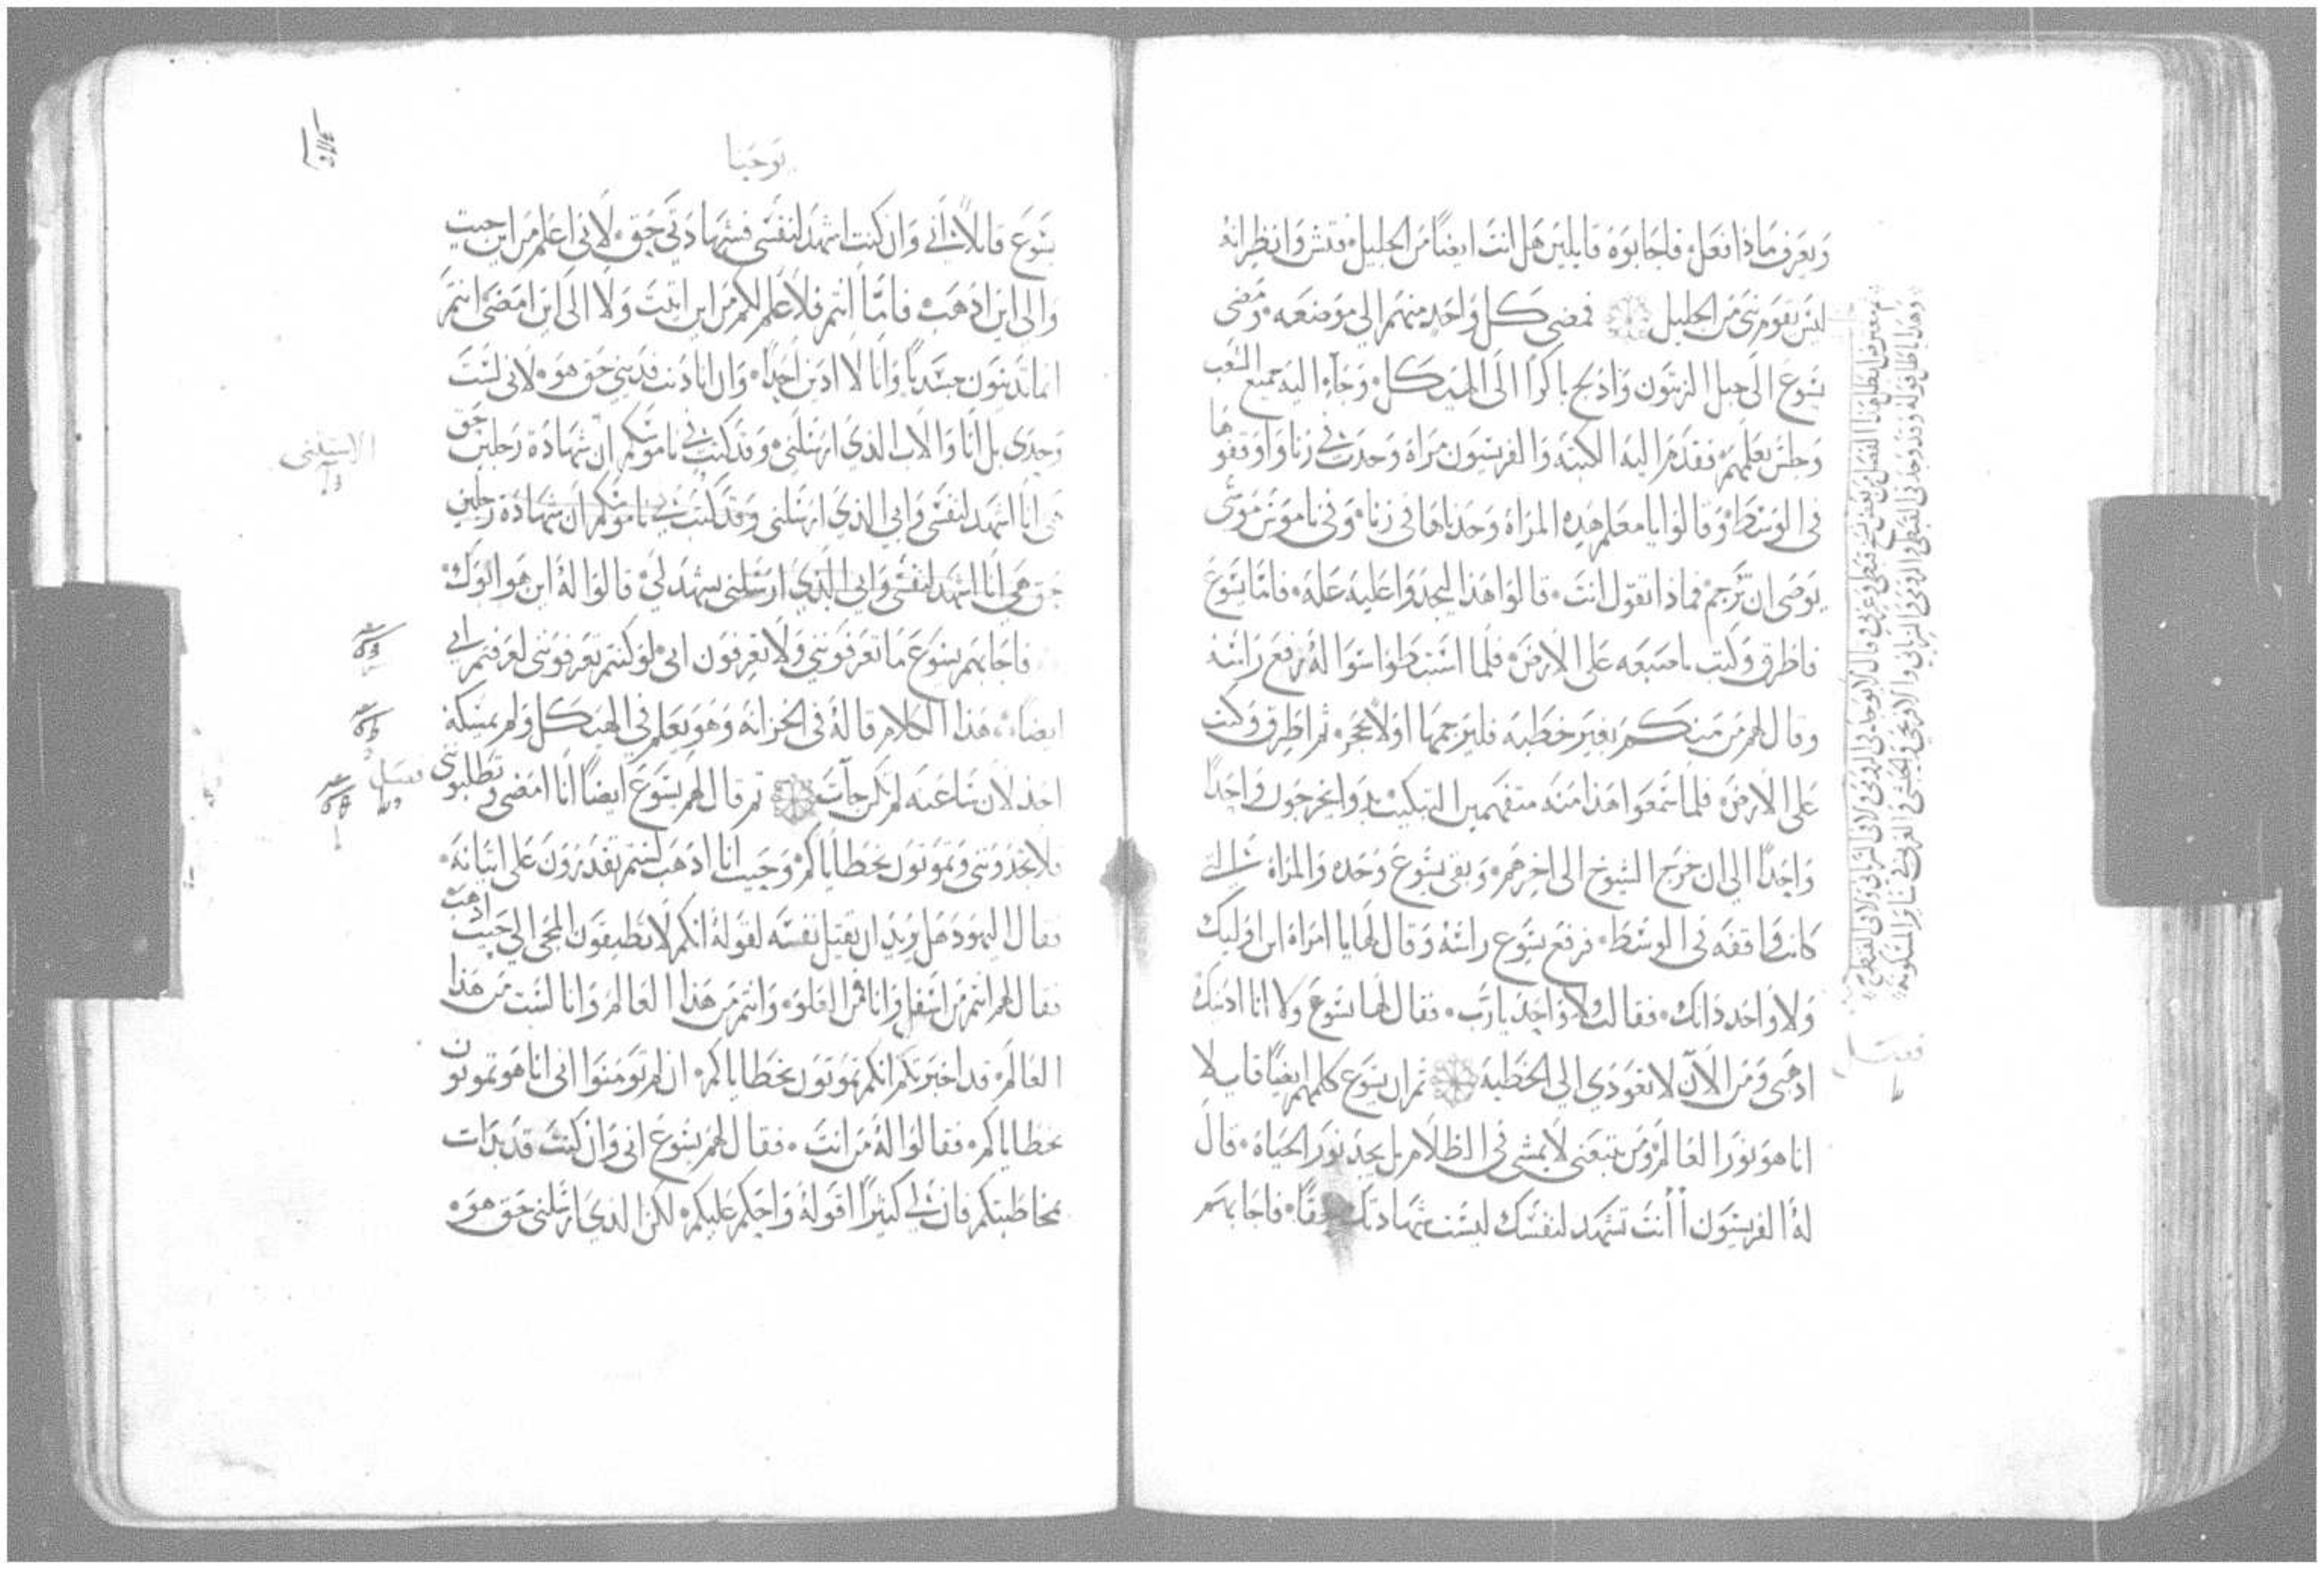 ويعرف ماذا فعل فاجابوه قايلين هل انت ايضًا من الجليل فتش وانظر انه
ليس يقوم نبي من الجليل فمضى كل واحد منهم الي موضعه ومضى
يسوع الى جبل الزيتون وادلج باكرًا الى الهيكل وجآء اليه جميع الشعب
وجلس يعلمهم فقدم اليه الكتبة والفريسيون مراة وجدت في زنا واوقفوها
في الوسط وقالوا يا معلم هذه المراة وجدناها في زنا وفي ناموس موسى
يوصى ان ترجم فماذا تقول انت قالوا هذا ليجدوا عليه علة فامّا يسوع
فاطرق وكتب باصبعه على الارض فلما استبطوا سوالهُ رفع راسه
وقال لهم من منكم بغير خطية فليرجمها اولًا بحجر ثم اطرق وكتب
على الارض فلما سمعوا هذا منه متفهمين التبكيت بدوا يخرجون واحدًا
واحدًا الي ان خرج الشيوخ الى اخرهم وبقى يسوع وحده والمراة
كانت واقفه في الوسط فرفع يسوع راسهُ وقال لها يا امراة اين اوليك
ولا واحد دانك فقالت لا واحد يا رب فقال لها يسوع ولا انا ادينك
اذهبى ومن الآن لا تعودي الي الخطية ثم ان يسوع كلمهم ايضًا قايلا
انا هو نور العالم ومن يتبعنى لا يمشى في الظلام بل يجد نور الحياة قال
لهُ الفريسيون أأنت تشهد لنفسك ليست شهادتك حقًا فاجابهم
فصل
يوحنا
يسوع قايلًا اني وان كنت اشهد لنفسى فشهادتي حق لاني اعلم من اين جيت
والى اين اذهب فامّا انتم فلا علم لكم من اين اتيت ولا الى اين امضى انتم
انما تدينون جسديًا وانا لا ادين احدًا وان انا دنت فديني حق هو لانى لست
وحدى بل انا والاب الذي ارسلنى وقد كتب في ناموسكم ان شهادة رجلين حق
هي انا اشهد لنفسى وابي الذي ارسلنى وقد كتب في ناموسكم ان شهادة رجلين
حق هي انا اشهد لنفسى وابي الذي ارسلنى يشهد لي قالوا لهُ اين هو ابوك
فاجابهم يسوع ما تعرفوننى ولا تعرفون ابى لو كنتم تعرفوننى لعرفتم ابي
ايضًا هذا الكلام قالهُ في الخزانة وهو يعلم في الهيكل ولم يمسكه
احد لان ساعته لم تكن جآت ثم قال لهم يسوع ايضًا انا امضى وتطلبونى
فلا تجدوننى وتموتون بخطاياكم وحيث انا اذهب لستم تقدرون على اتيانه
فقال اليهود هل يريد ان يقتل نفسه لقوله انكم لا تطيقون المجى الي حيث اذهب
فقال لهم انتم من اسفل وانا من العلو وانتم من هذا العالم وانا لست من هذا
العالم قد اخبرتكم انكم تموتون بخطاياكم ان لم تومنوا انى انا هو تموتون
بخطاياكم فقالوا لهُ من انت فقال لهم يسوع انى وان كنت قد بدات
بمخاطبتكم فان لي كثيرًا اقوله واحكم عليكم لكن الذي ارسلنى حق هو
فصل